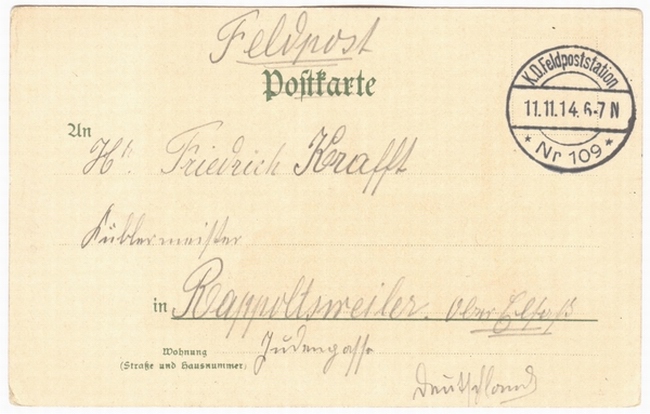 Feldpost
Postkarte
K.D.Feldpoststation
11.11.14. 6-7 N
* Nr 109 *
An
Hr. Friedrich Krafft
Küblermeister
in Rappoltsweiler. Ober Elsaß
Wohnung
(Straße und Hausnummer)
Judengasse
Deutschland